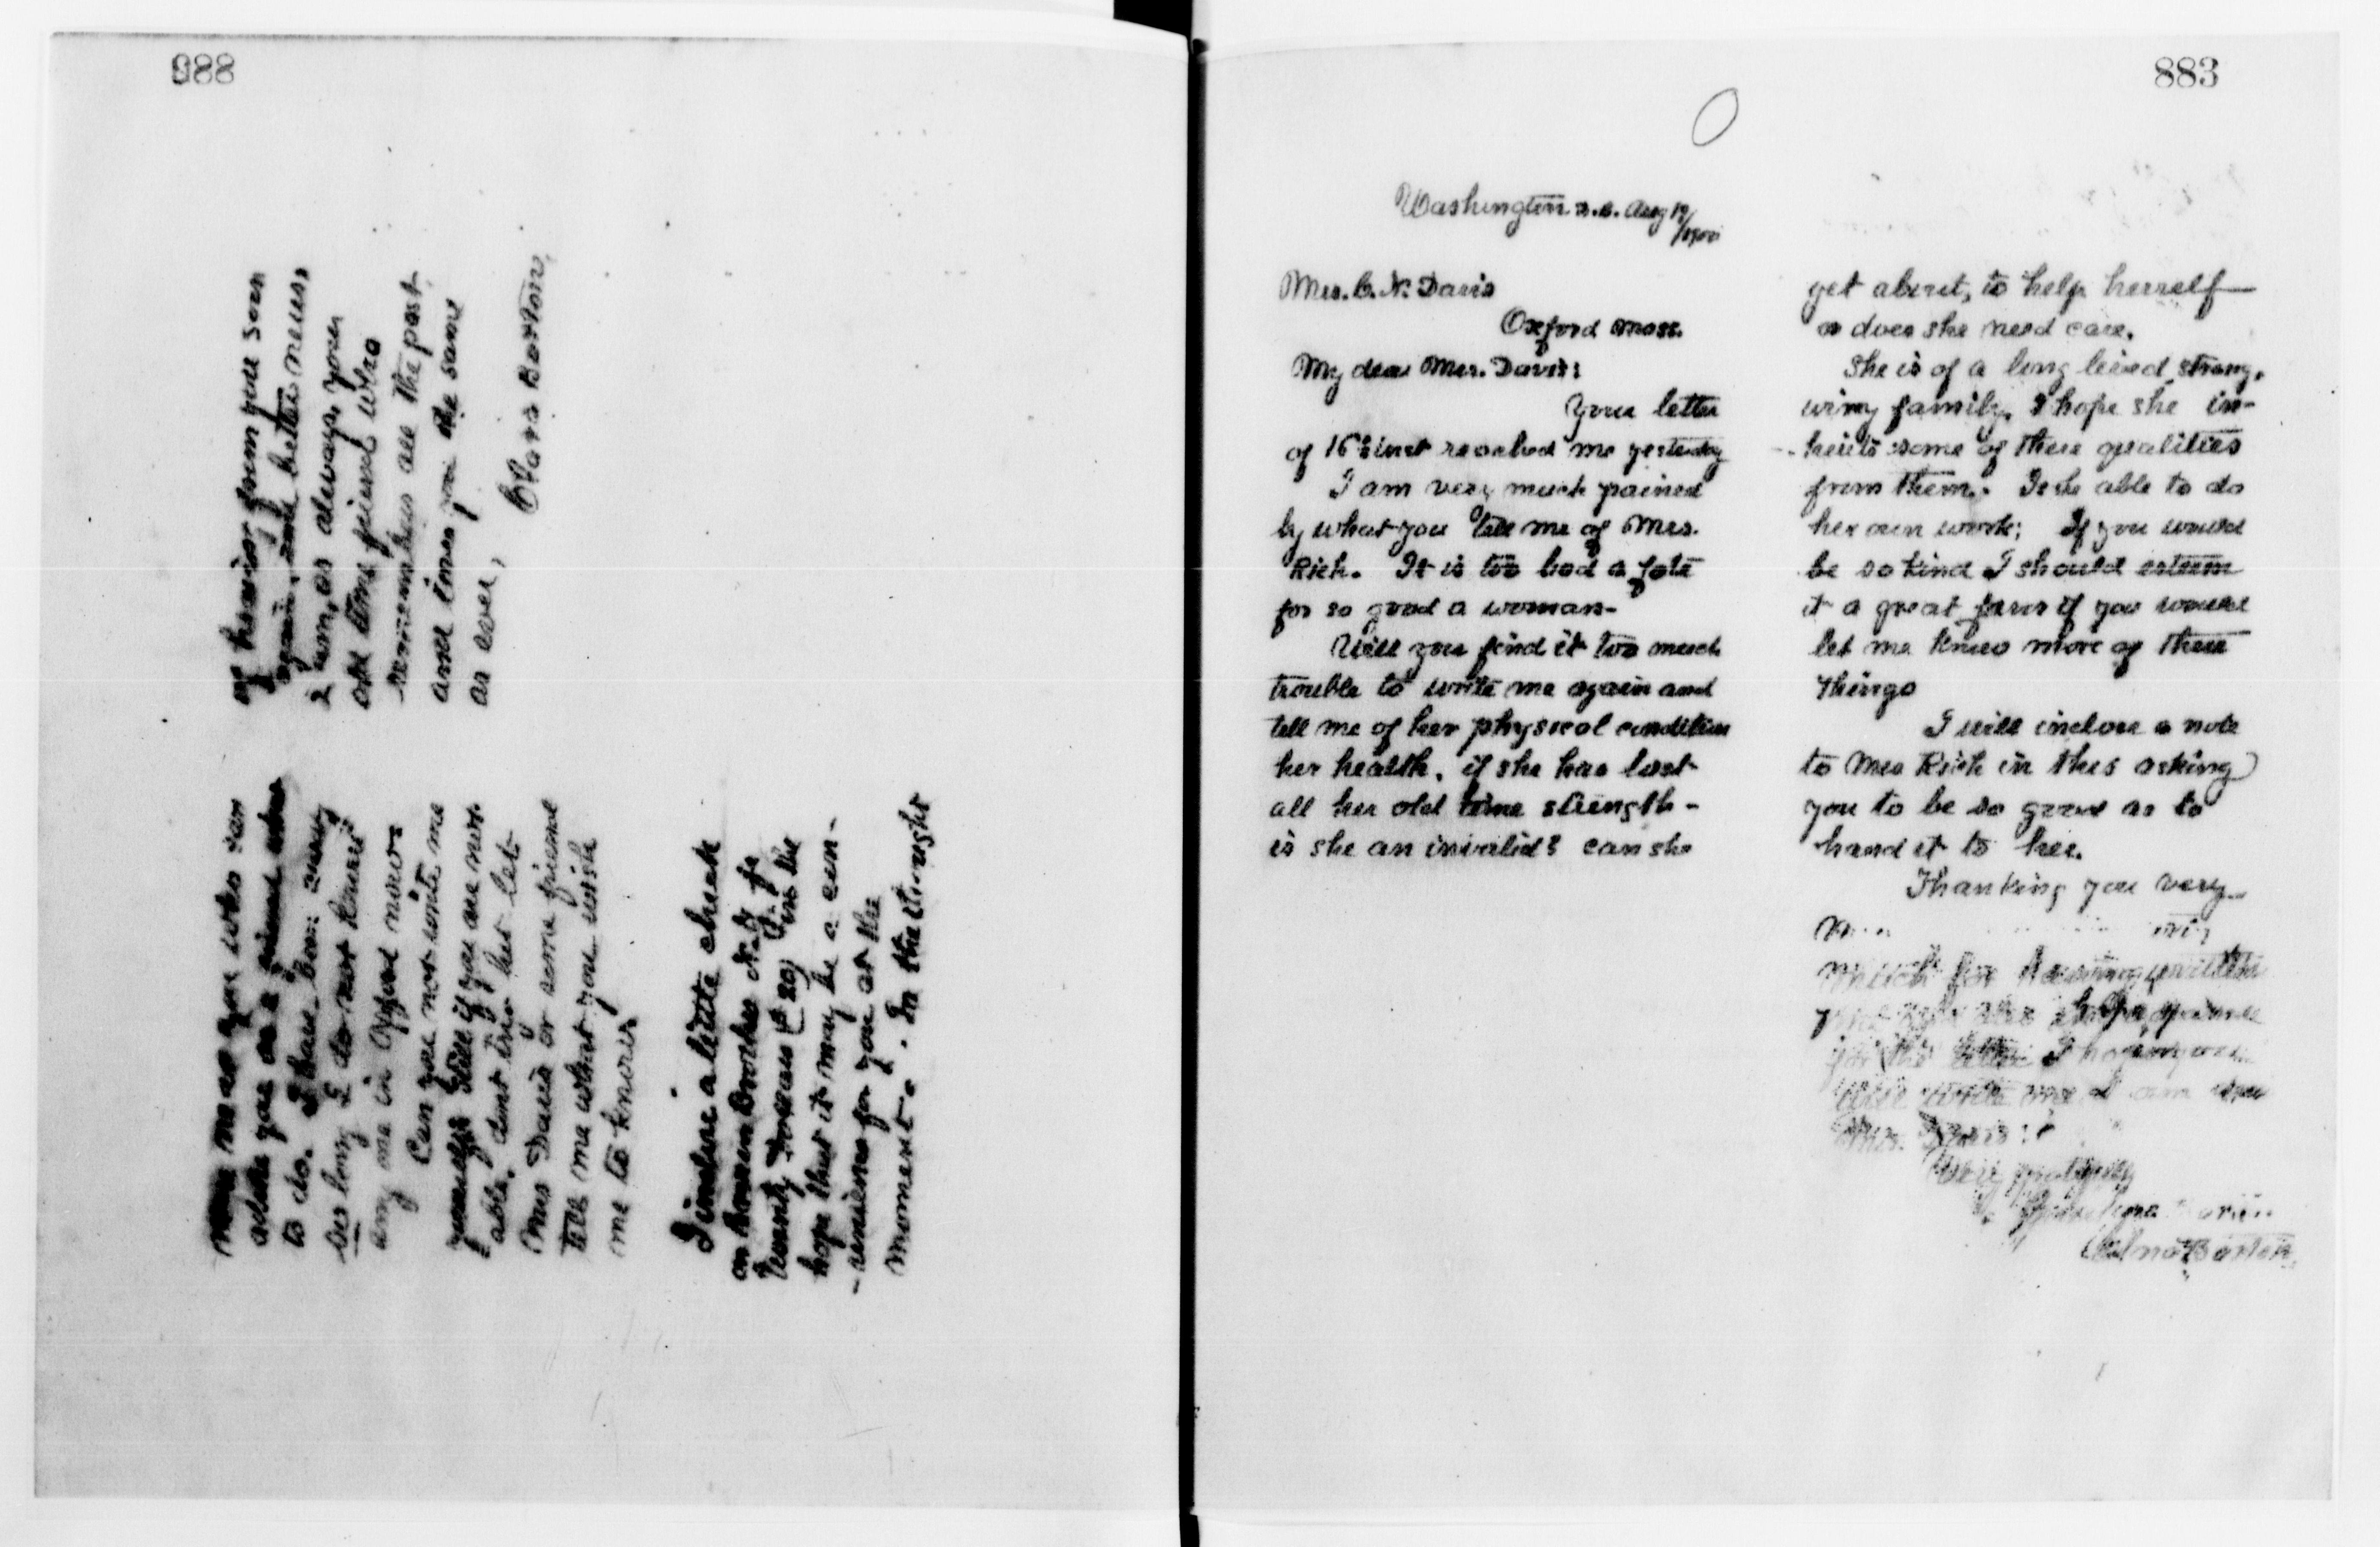 988
now me as you who can
advise you as a friend what
to do. I have been away
so long I do not know
any one in Oxford now.
Can you not write me
yourself still if you are not
able, dont try but let
Mrs Davis or some friend
tell me what you wish
me to know
I inclose a little check
on Brown Brothers N.Y. for
twenty Dollars ($20) in the
hope that it may be a con-
-venience for you at the
moment. In the thought
of hearing from you soon
again, and better news,
I am, as always, your
old time friend who
remembers all the past
and loves you the same
as ever,
Clara Barton,
883
Washington D.C. Aug 19/1900
Mrs. C. N. Davis
Oxford Mass.
My dear Mrs. Davis:
Your letter
of 16th inst reached me yesterday
I am very much pained
by what you tell me of Mrs.
Rich. It is too bad a fate
for so good a woman-
Will you find it too much
trouble to write me again and
tell me of her physical condition
her health, if she has lost
all her old time strength-
is she an invalid? can she
get about, to help herself
or does she need care.
She is of a long lived, strong,
wiry family, I hope she in-
-herits some of these qualities
from them. Is she able to do
her own work; If you would
be so kind I should esteem
it a great favor if you would
let me know more of these
things
I will inclose a note
to Mrs Rich in this asking
you to be so good as to
hand it to her.
Thanking you very
much for having written
for the letter I hope you
will write me I am dear
Mrs. Davis:
Very gratefully
Clara Barton